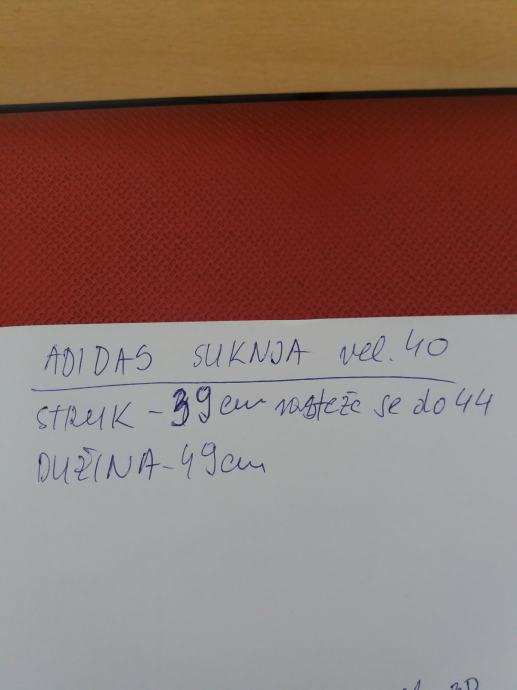 ADIDAS SUKNJA vel. 40
STRUK - 39cm rasteže se do 44
DUŽINA - 49cm